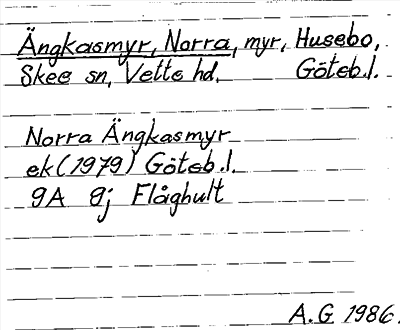 Ängkasmyr, Norra, myr, Husebo,
Skee sn, Vette hd. Göteb.l.
Norra Ängkasmyr
ek (1979) Göteb.l.
9A 9j Flåghult
A.G 1986.